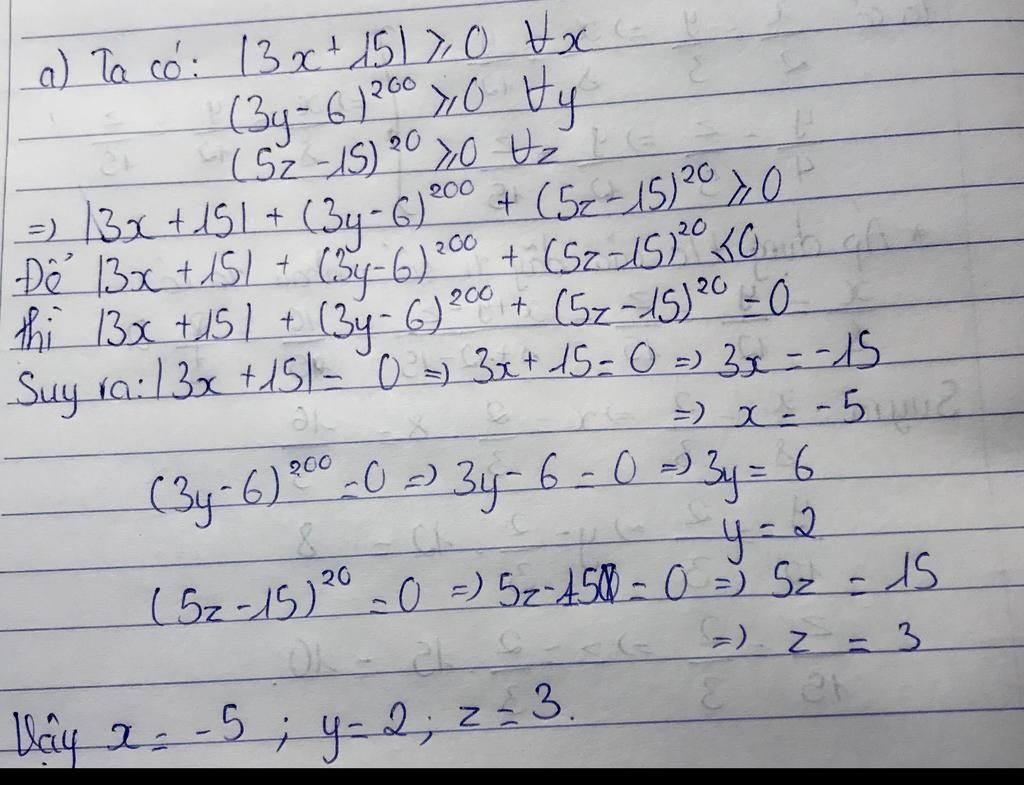 a) Ta có: |3x + 15| ⩾ 0 ∀x
(3y - 6)²⁰⁰ ⩾ 0 ∀y
(5z - 15)²⁰ ⩾ 0 ∀z
=> |3x + 15| + (3y - 6)²⁰⁰ + (5z - 15)²⁰ ⩾ 0
Để |3x + 15| + (3y - 6)²⁰⁰ + (5z - 15)²⁰ ⩽ 0
thì |3x + 15| + (3y - 6)²⁰⁰ + (5z - 15)²⁰ = 0
Suy ra: |3x + 15| = 0 => 3x + 15 = 0 => 3x = -15
=> x = -5
(3y - 6)²⁰⁰ = 0 => 3y - 6 = 0 => 3y = 6
y = 2
(5z - 15)²⁰ = 0 => 5z - 15 = 0 => 5z = 15
=> z = 3
Vậy x = -5 ; y = 2 ; z = 3.